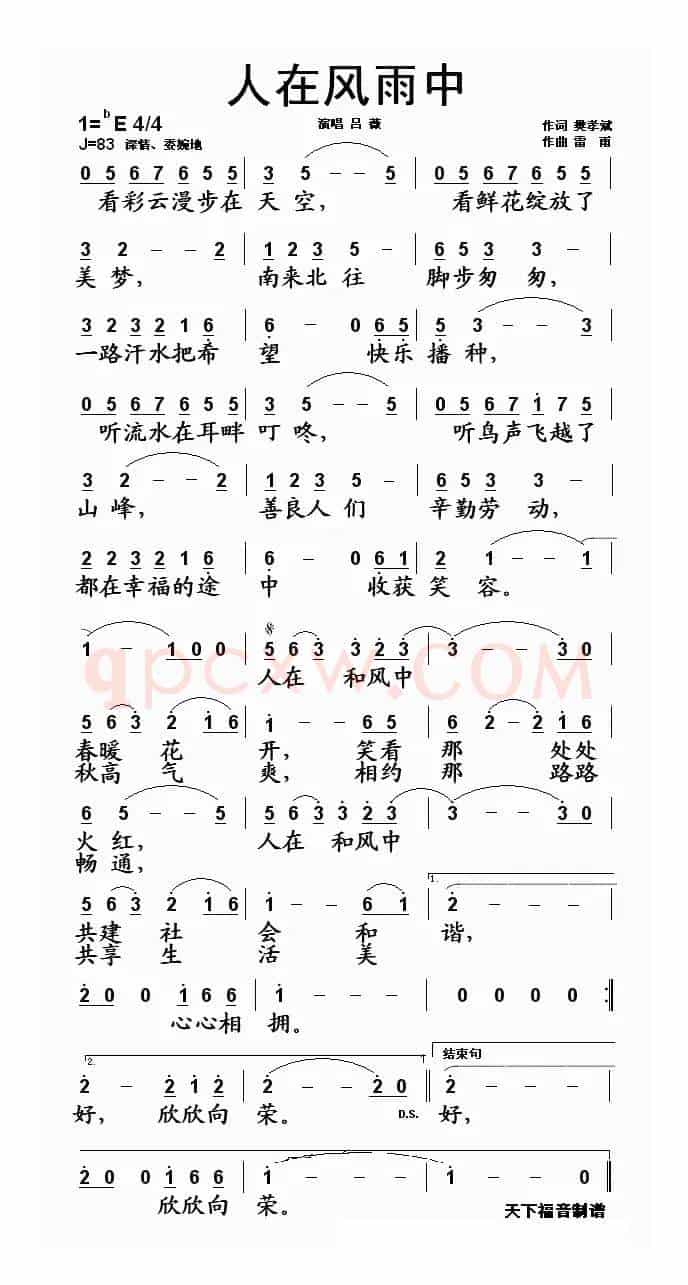 人在风雨中
1=ᵇE 4/4 演唱 吕薇 作词 樊孝斌
J=83 深情、委婉地 作曲 雷雨
0 5 6 7 6 5 5 | 3 5 - - 5 | 0 5 6 7 6 5 5
看彩云漫步在 天空, 看鲜花绽放了
3 2 - - 2 | 1 2 3 5 - | 6 5 3 3 -
美梦, 南来北往 脚步匆匆,
3 2 3 2 1 6 | 6 - 0 6 5 | 5 3 - - 3
一路汗水把希 望 快乐播种,
0 5 6 7 6 5 5 | 3 5 - - 5 | 0 5 6 7 1 7 5
听流水在耳畔 叮咚, 听鸟声飞越了
3 2 - - 2 | 1 2 3 5 - | 6 5 3 3 -
山峰, 善良人们 辛勤劳动,
2 2 3 2 1 6 | 6 - 0 6 1 | 2 1 - - 1
都在幸福的途 中 收获笑容。
1 - 1 0 0 | 5 6 3 3 2 3 | 3 - - 3 0
qpcxw.COM
人在 和风中
5 6 3 2 1 6 | 1 - 6 5 | 6 2 - 2 1 6
春暖 花 开, 笑看 那 处处
秋高 气 爽, 相约 那 路路
6 5 - - 5 | 5 6 3 3 3 2 3 | 3 - - 3 0
火红, 人在 和风中
畅通,
1.
5 6 3 2 1 6 | 1 - 6 1 | 2 - - -
共建 社 会 和 谐,
共享 生 活 美
2 0 0 1 6 6 | 1 - - - | 0 0 0 0 :||
心心相 拥。
2. 结束句
2 - 2 1 2 | 2 - - 2 0 || 2 - - -
好, 欣欣向 荣。 D.S. 好,
2 0 0 1 6 6 | 1 - - - | 1 - - -
欣欣向 荣。 天下福音制谱